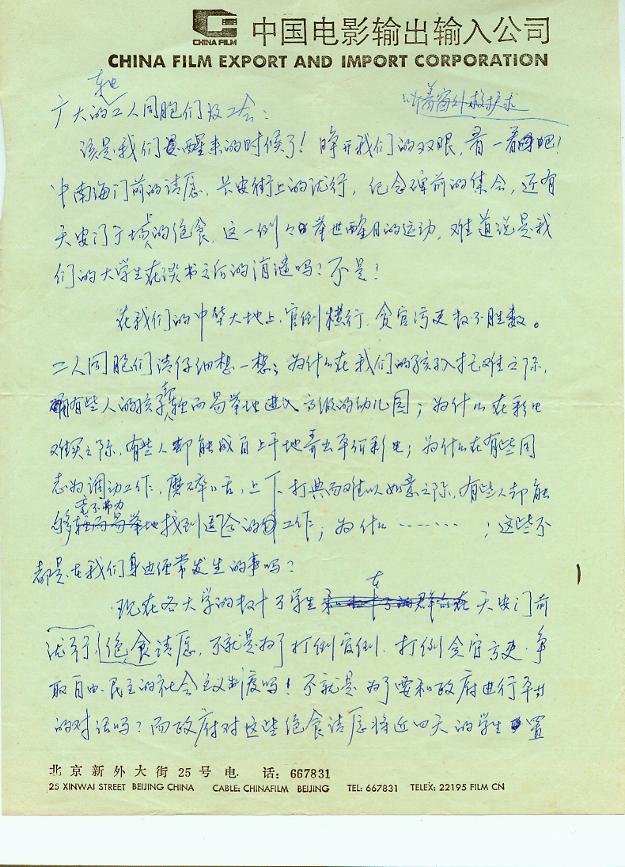 CHINA FILM
中国电影输出输入公司
CHINA FILM EXPORT AND IMPORT CORPORATION
广大的工人同胞们及工会：
听着窗外救护
该是我们醒来的时候了！睁开我们的双眼，看一看吧！
中南海门前的请愿，长安街上的游行，纪念碑前的集合，还有
天安门广场的绝食，这一例例举世瞩目的运动，难道说是我
们的大学生在读书之后的消遣吗？不是！
在我们的中华大地上，官倒横行，贪官污吏数不胜数。
工人同胞们请仔细想一想：为什么在我们的孩子入托难之际，
有些人的孩子轻而易举地进入高级的幼儿园；为什么在彩电
难买之际，有些人却能成百上千地弄出平价彩电；为什么在有些同
志为调动工作，磨碎口舌，上下打点而难以如意之际，有些人却能
够毫不费力地找到适合的工作；为什么………；这些不
都是在我们身边经常发生的事吗？
现在各大学的数十万学生在天安门前
游行绝食请愿，不就是为了打倒官倒，打倒贪官污吏，争
取自由、民主的社会主义制度吗！不就是为了要和政府进行平等
的对话吗？而政府对这些绝食请愿将近四天的学生置
北京新外大街25号 电 话：667831
25 XINWAI STREET BEIJING CHINA CABLE: CHINAFILM BEIJING TEL: 667831 TELEX: 22195 FILM CN